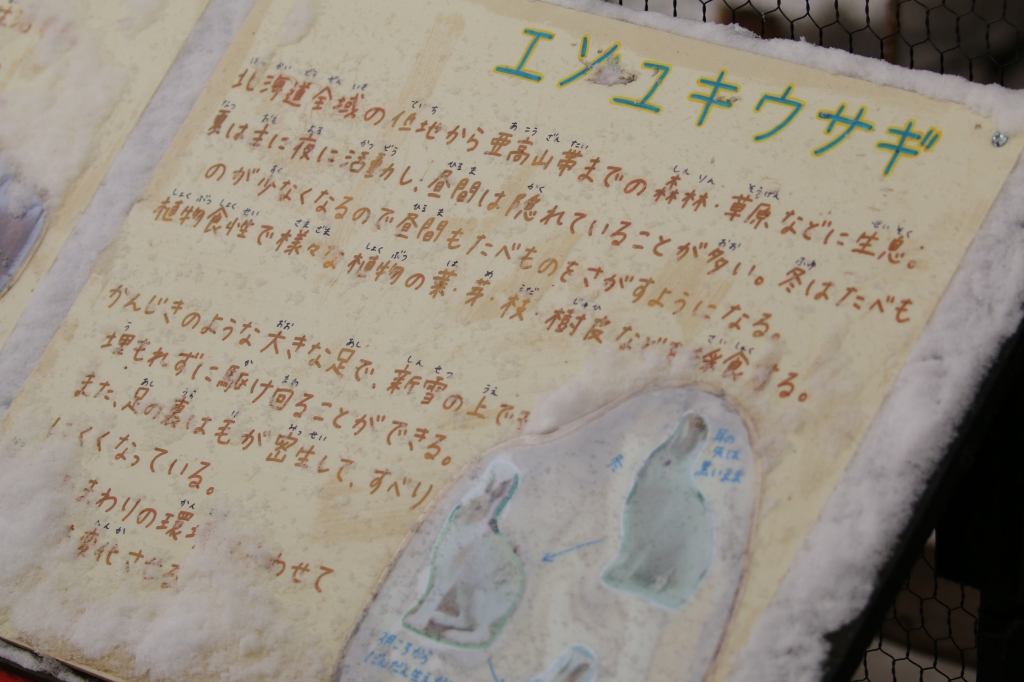 エゾユキウサギ
北海道全域の低地から亜高山帯までの森林・草原などに生息。
夏は主に夜に活動し、昼間は隠れていることが多い。冬はたべも
のが少なくなるので昼間もたべものをさがすようになる。
植物食性で様々な植物の葉・芽・枝・樹皮など 採食 る。
かんじきのような大きな足で、新雪の上でも
埋もれずに駆け回ることができる。
また、足の裏は毛が密生して、すべり
にくくなっている。
まわりの環 わせて
変化させる
冬
耳の
先は
黒いまま